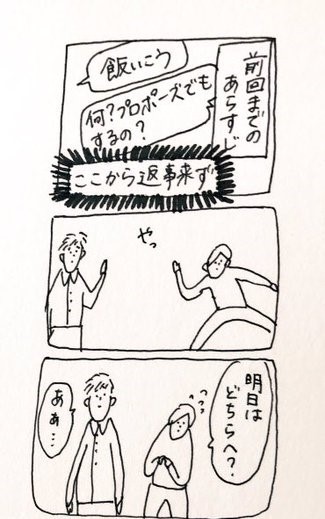 前回までの
あらすじ
飯いこう
何?プロポーズでも
するの?
ここから返事来ず
やっ
明日は
どちらへ?
あぁ…